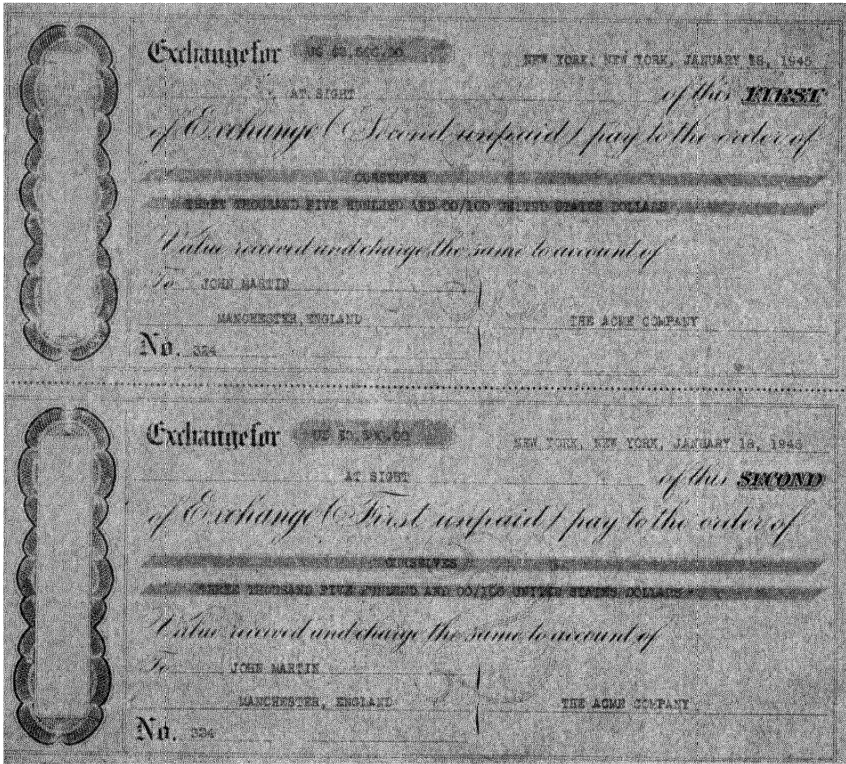 Exchange for US $3,500.00 NEW YORK, NEW YORK, JANUARY 18, 1945
AT SIGHT of this FIRST
of Exchange (Second unpaid) pay to the order of
OURSELVES
THREE THOUSAND FIVE HUNDRED AND 00/100 UNITED STATES DOLLARS
Value received and charge the same to account of
To JOHN MARTIN
MANCHESTER, ENGLAND THE ACME COMPANY
No. 324
Exchange for US $3,500.00 NEW YORK, NEW YORK, JANUARY 18, 1945
AT SIGHT of this SECOND
of Exchange (First unpaid) pay to the order of
OURSELVES
THREE THOUSAND FIVE HUNDRED AND 00/100 UNITED STATES DOLLARS
Value received and charge the same to account of
To JOHN MARTIN
MANCHESTER, ENGLAND THE ACME COMPANY
No. 324